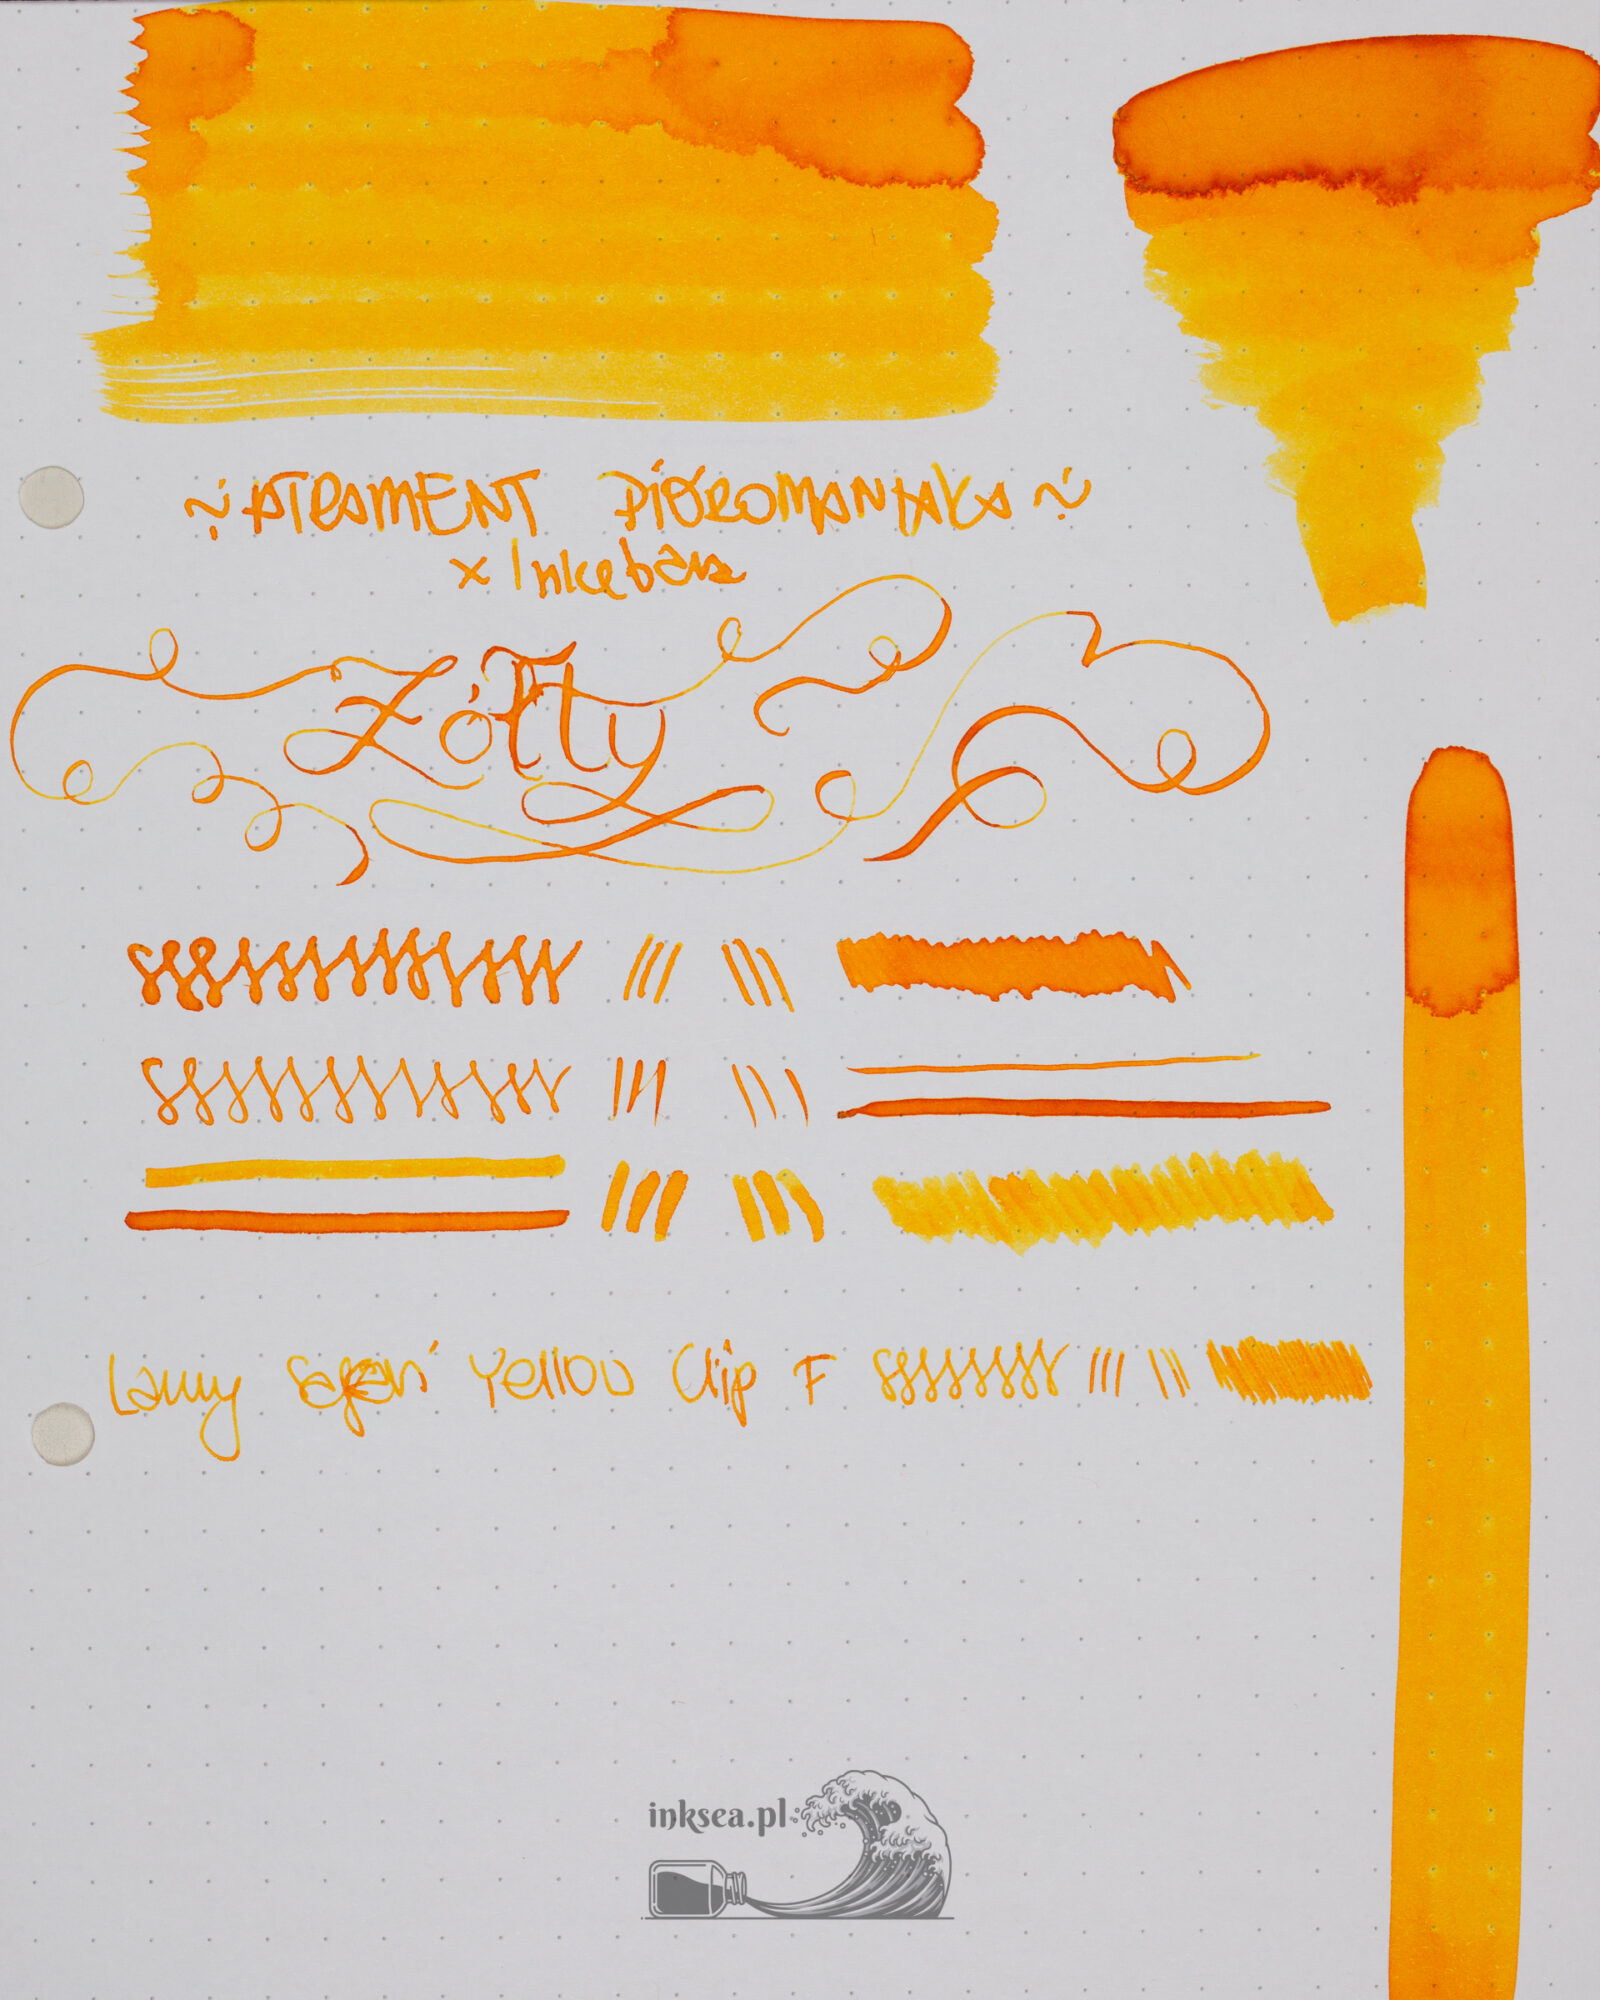 ~ ATRAMENT PIÓROMANIAKA ~
x Inkebara
Żółty
Lamy Safari Yellow Clip F
inksea.pl